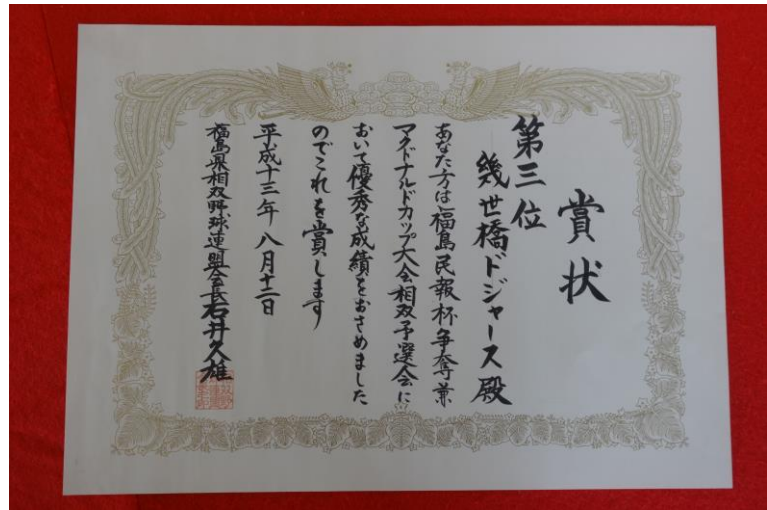 賞状
第三位
幾世橋ドジャース殿
あなた方は福島民報杯争奪兼
マクドナルドカップ大会相双予選会に
おいて優秀な成績をおさめました
のでこれを賞します
平成十三年八月十二日
福島県相双野球連盟会長石井久雄